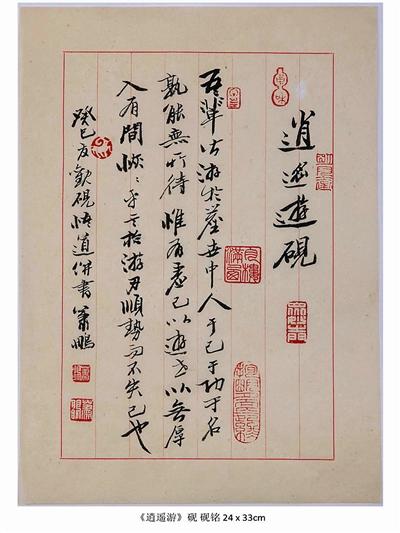 逍遥遊硯
吾輩皆游於塵世中人于己于功于名
孰能無所待惟有虛己以遊世以無厚
入有間恢〻乎於游刃順勢而不失己也
癸巳友歡硯悟道併書 蕭鵬
《逍遥游》 砚 砚铭 24 x 33cm